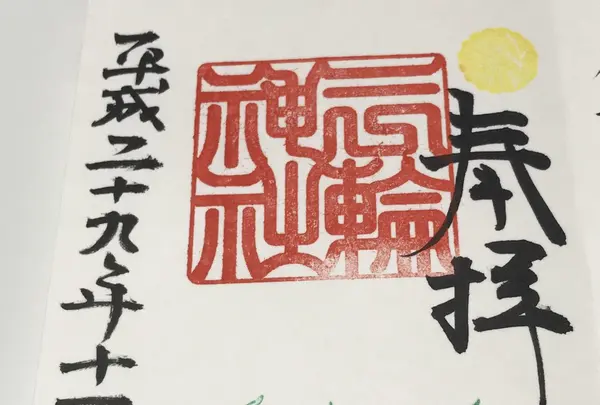 奉拝
三輪
神社
平成二十九年十一